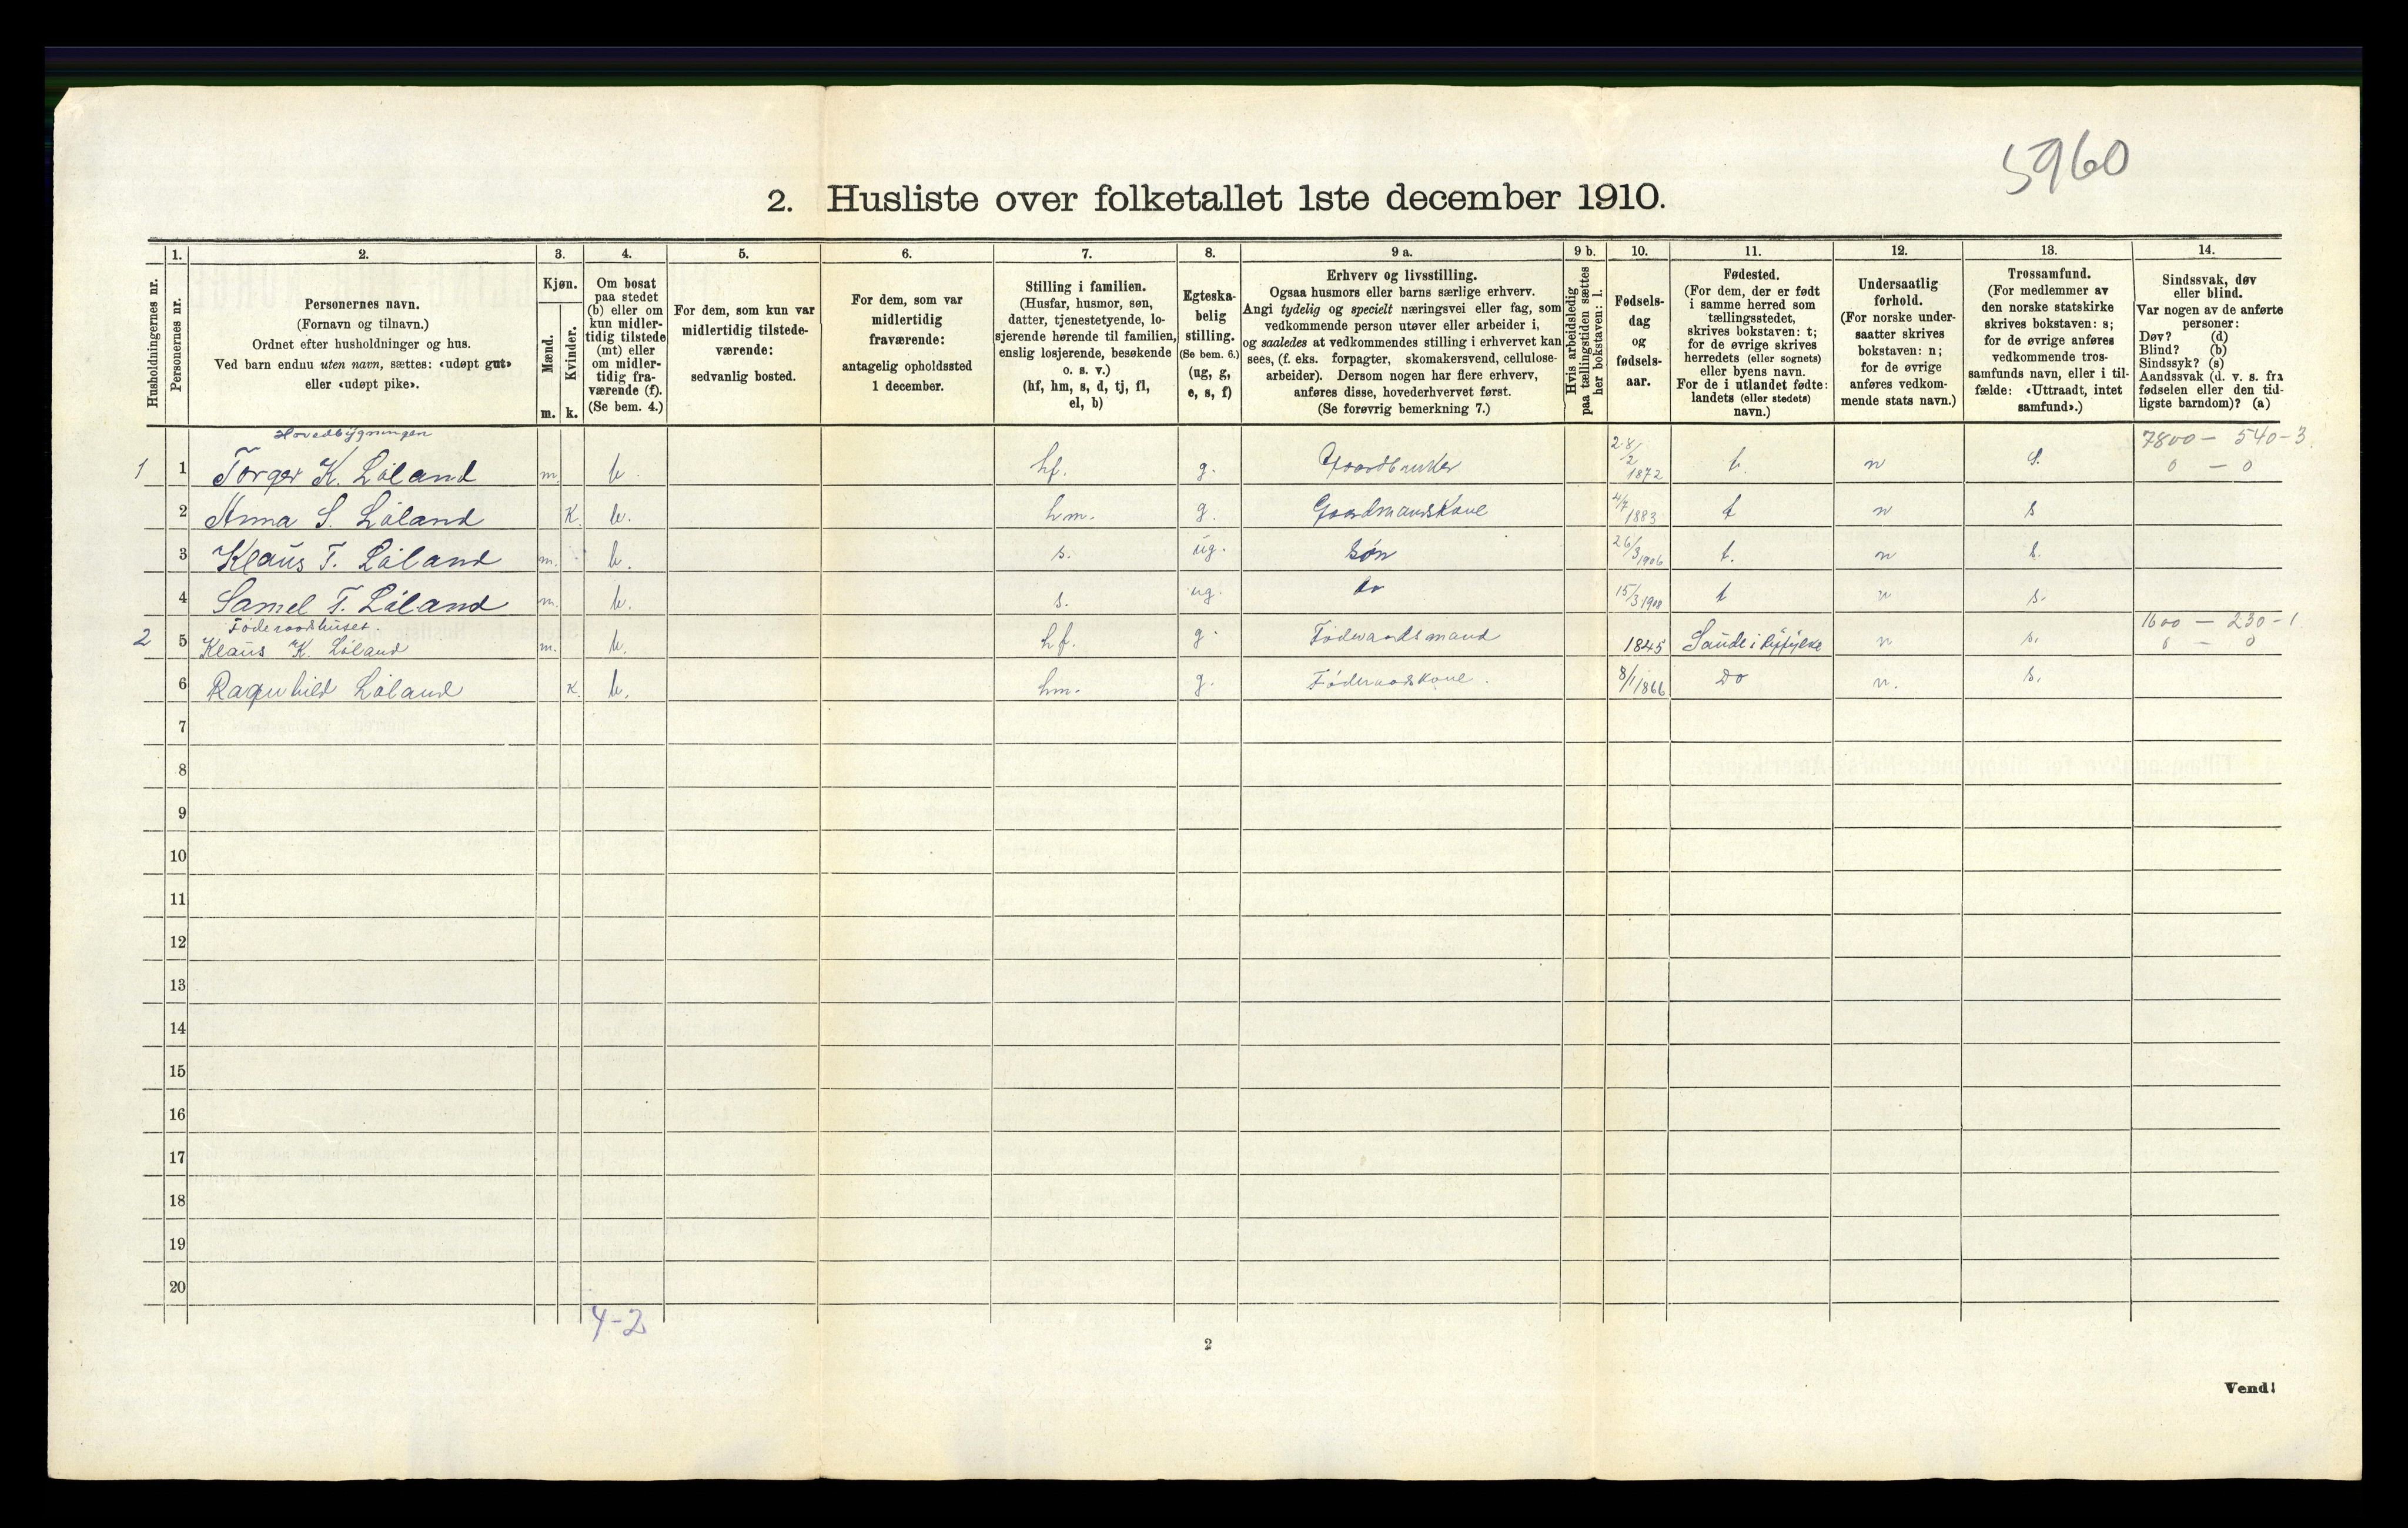 5960
2. Husliste over folketallet 1ste december 1910.
1. 2. 3. 4. 5. 6. 7. 8. 9 a. 9 b. 10. 11. 12. 13. 14.
Husholdningernes nr.
Personernes nr.
Personernes navn.
(Fornavn og tilnavn.)
Ordnet efter husholdninger og hus.
Ved barn endnu uten navn, sættes: «udøpt gut»
eller «udøpt pike».
Kjøn.
Mænd.
Kvinder.
m. k.
Om bosat
paa stedet
(b) eller om
kun midler-
tidig tilstede
(mt) eller
om midler-
tidig fra-
værende (f).
(Se bem. 4.)
For dem, som kun var
midlertidig tilstede-
værende:
sedvanlig bosted.
For dem, som var
midlertidig
fraværende:
antagelig opholdssted
1 december.
Stilling i familien.
(Husfar, husmor, søn,
datter, tjenestetyende, lo-
sjerende hørende til familien,
enslig losjerende, besøkende
o. s. v.)
(hf, hm, s, d, tj, fl,
el, b)
Egteska-
belig
stilling.
(Se bem. 6.)
(ug, g,
e, s, f)
Erhverv og livsstilling.
Ogsaa husmors eller barns særlige erhverv.
Angi tydelig og specielt næringsvei eller fag, som
vedkommende person utøver eller arbeider i,
og saaledes at vedkommendes stilling i erhvervet kan
sees, (f. eks. forpagter, skomakersvend, cellulose-
arbeider). Dersom nogen har flere erhverv,
anføres disse, hovederhvervet først.
(Se forøvrig bemerkning 7.)
Hvis arbeidsledig
paa tællingstiden sættes
her bokstaven: l.
Fødsels-
dag
og
fødsels-
aar.
Fødested.
(For dem, der er født
i samme herred som
tællingsstedet,
skrives bokstaven: t;
for de øvrige skrives
herredets (eller sognets)
eller byens navn.
For de i utlandet fødte:
landets (eller stedets)
navn.)
Undersaatlig
forhold.
(For norske under-
saatter skrives
bokstaven: n;
for de øvrige
anføres vedkom-
mende stats navn.)
Trossamfund.
(For medlemmer av
den norske statskirke
skrives bokstaven: s;
for de øvrige anføres
vedkommende tros-
samfunds navn, eller i til-
fælde: «Uttraadt, intet
samfund».)
Sindssvak, døv
eller blind.
Var nogen av de anførte
personer:
Døv? (d)
Blind? (b)
Sindssyk? (s)
Aandssvak (d. v. s. fra
fødselen eller den tid-
ligste barndom)? (a)
Hovedbygningen 7800 - 540-3
1 1 Torger K. Løland m. b. hf. g. Gaardbruker 28/2 1872 t. n S. 0 - 0
2 Anna S. Løland K. b. hm. g. Gaardmandskone 4/7 1883 t n s
3 Klaus T. Løland m. b. s. ug. søn 26/3 1906 t. n s.
4 Samel T. Løland m. b. s. ug. do 15/3 1908 t n s.
Føderaadshuset. 1600 - 230-1
2 5 Klaus K. Løland m. b. hf. g. Føderaadsmand 1845 Sande i Ryfylke n s. 0 - 0
6 Ragnhild Løland K. b. hm. g. Føderaadskone. 8/1 1866 Do n. s.
7
8
9
10
11
12
13
14
15
16
17
18
19
20
4-2
2
Vend!